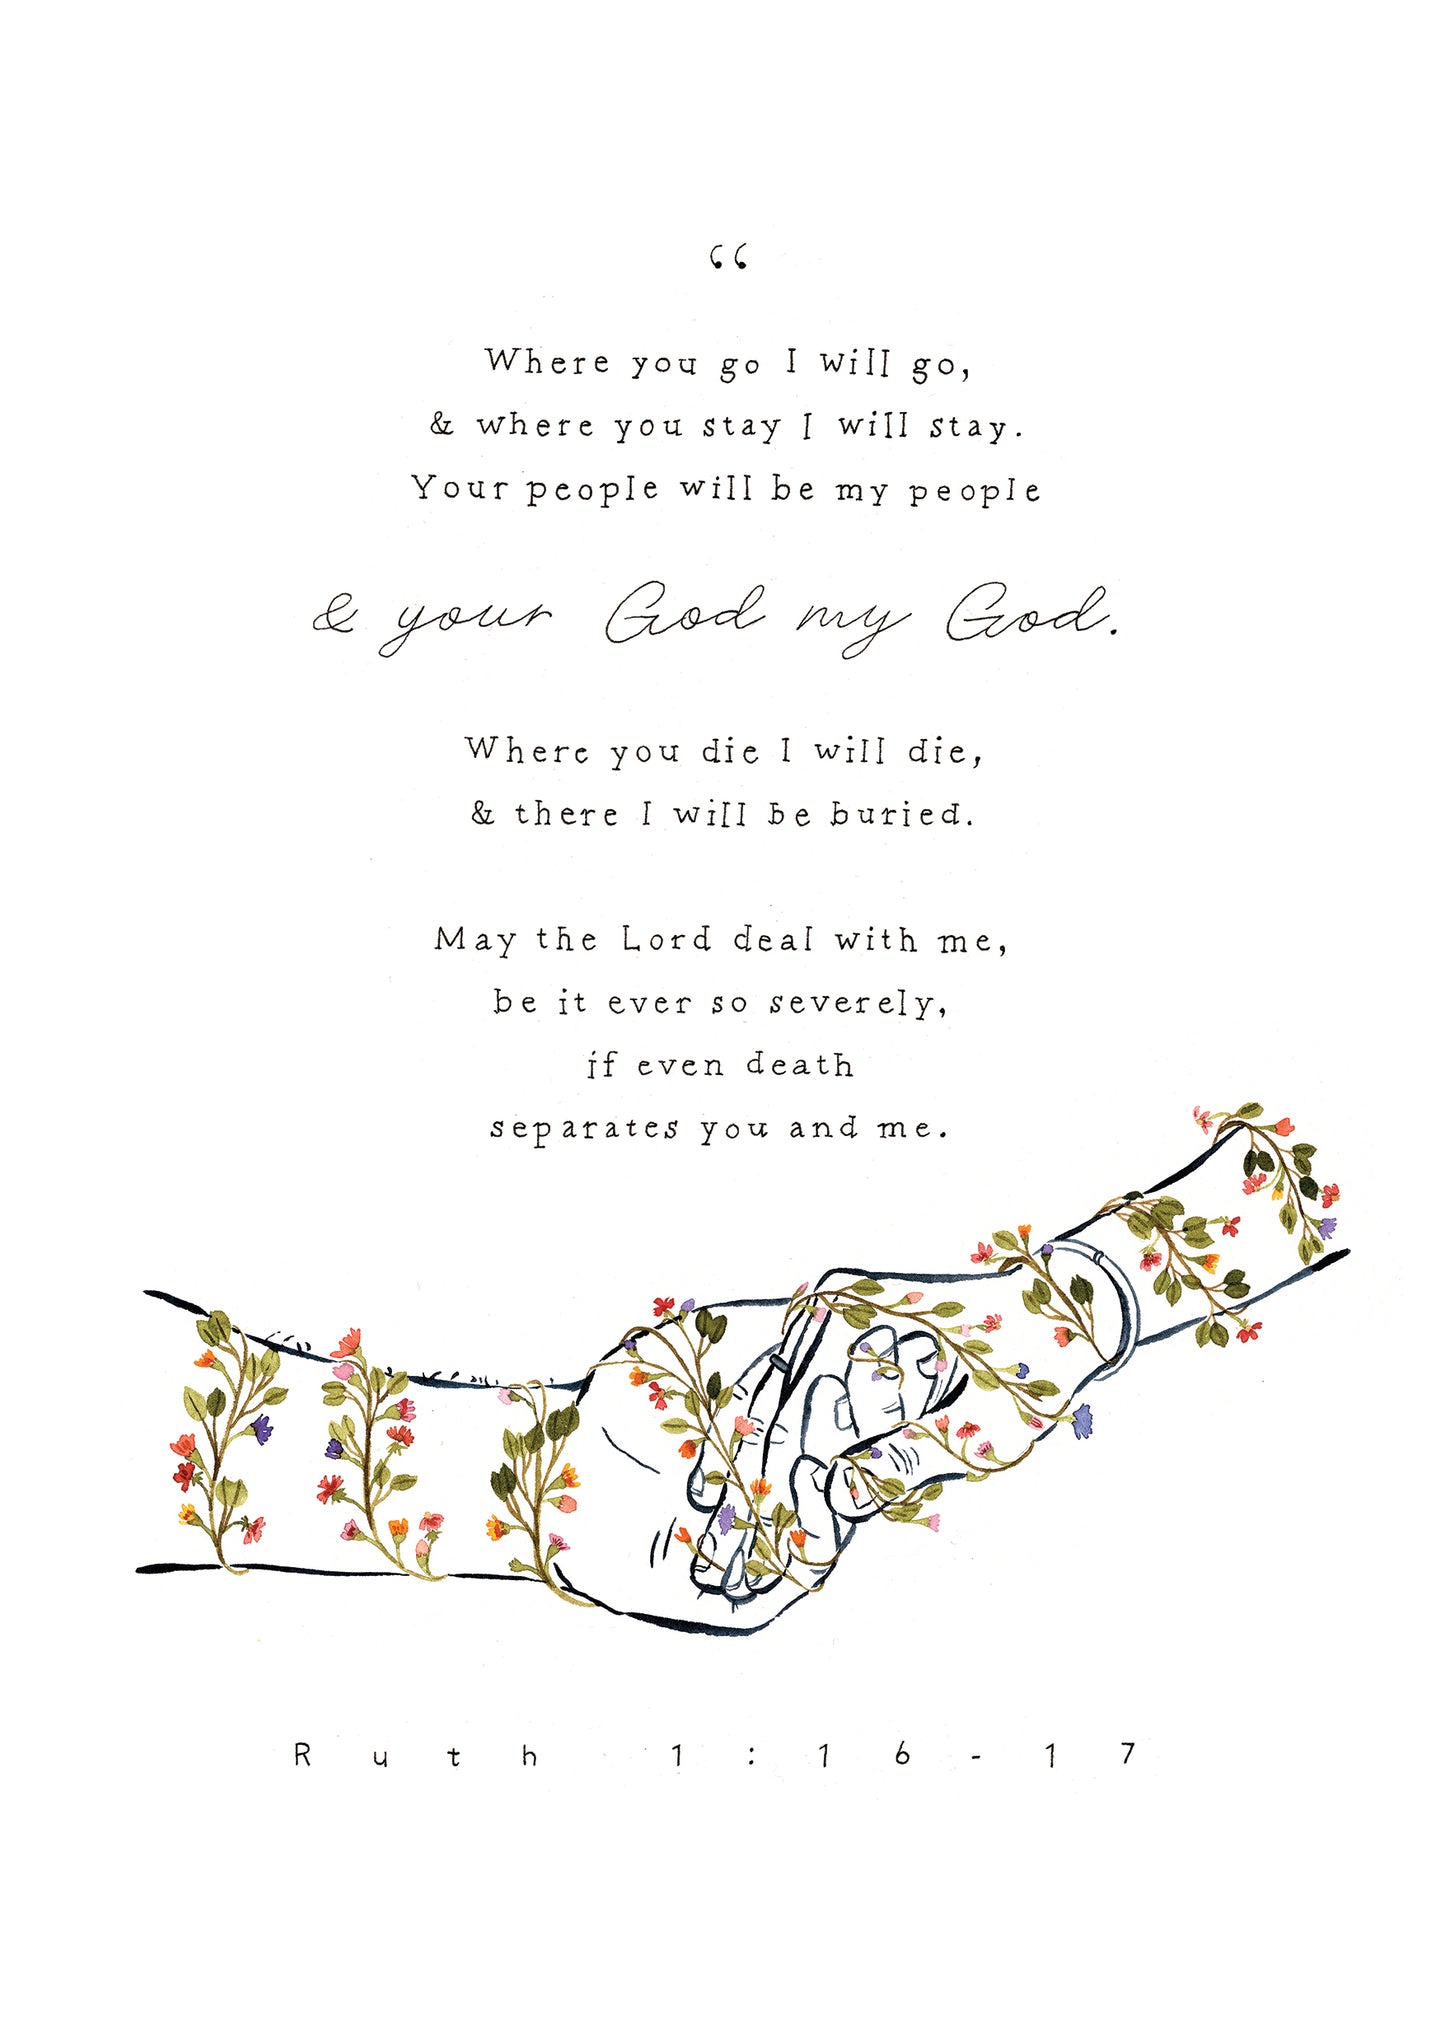 “
Where you go I will go,
& where you stay I will stay.
Your people will be my people
& your God my God.
Where you die I will die,
& there I will be buried.
May the Lord deal with me,
be it ever so severely,
if even death
separates you and me.
Ruth 1:16-17